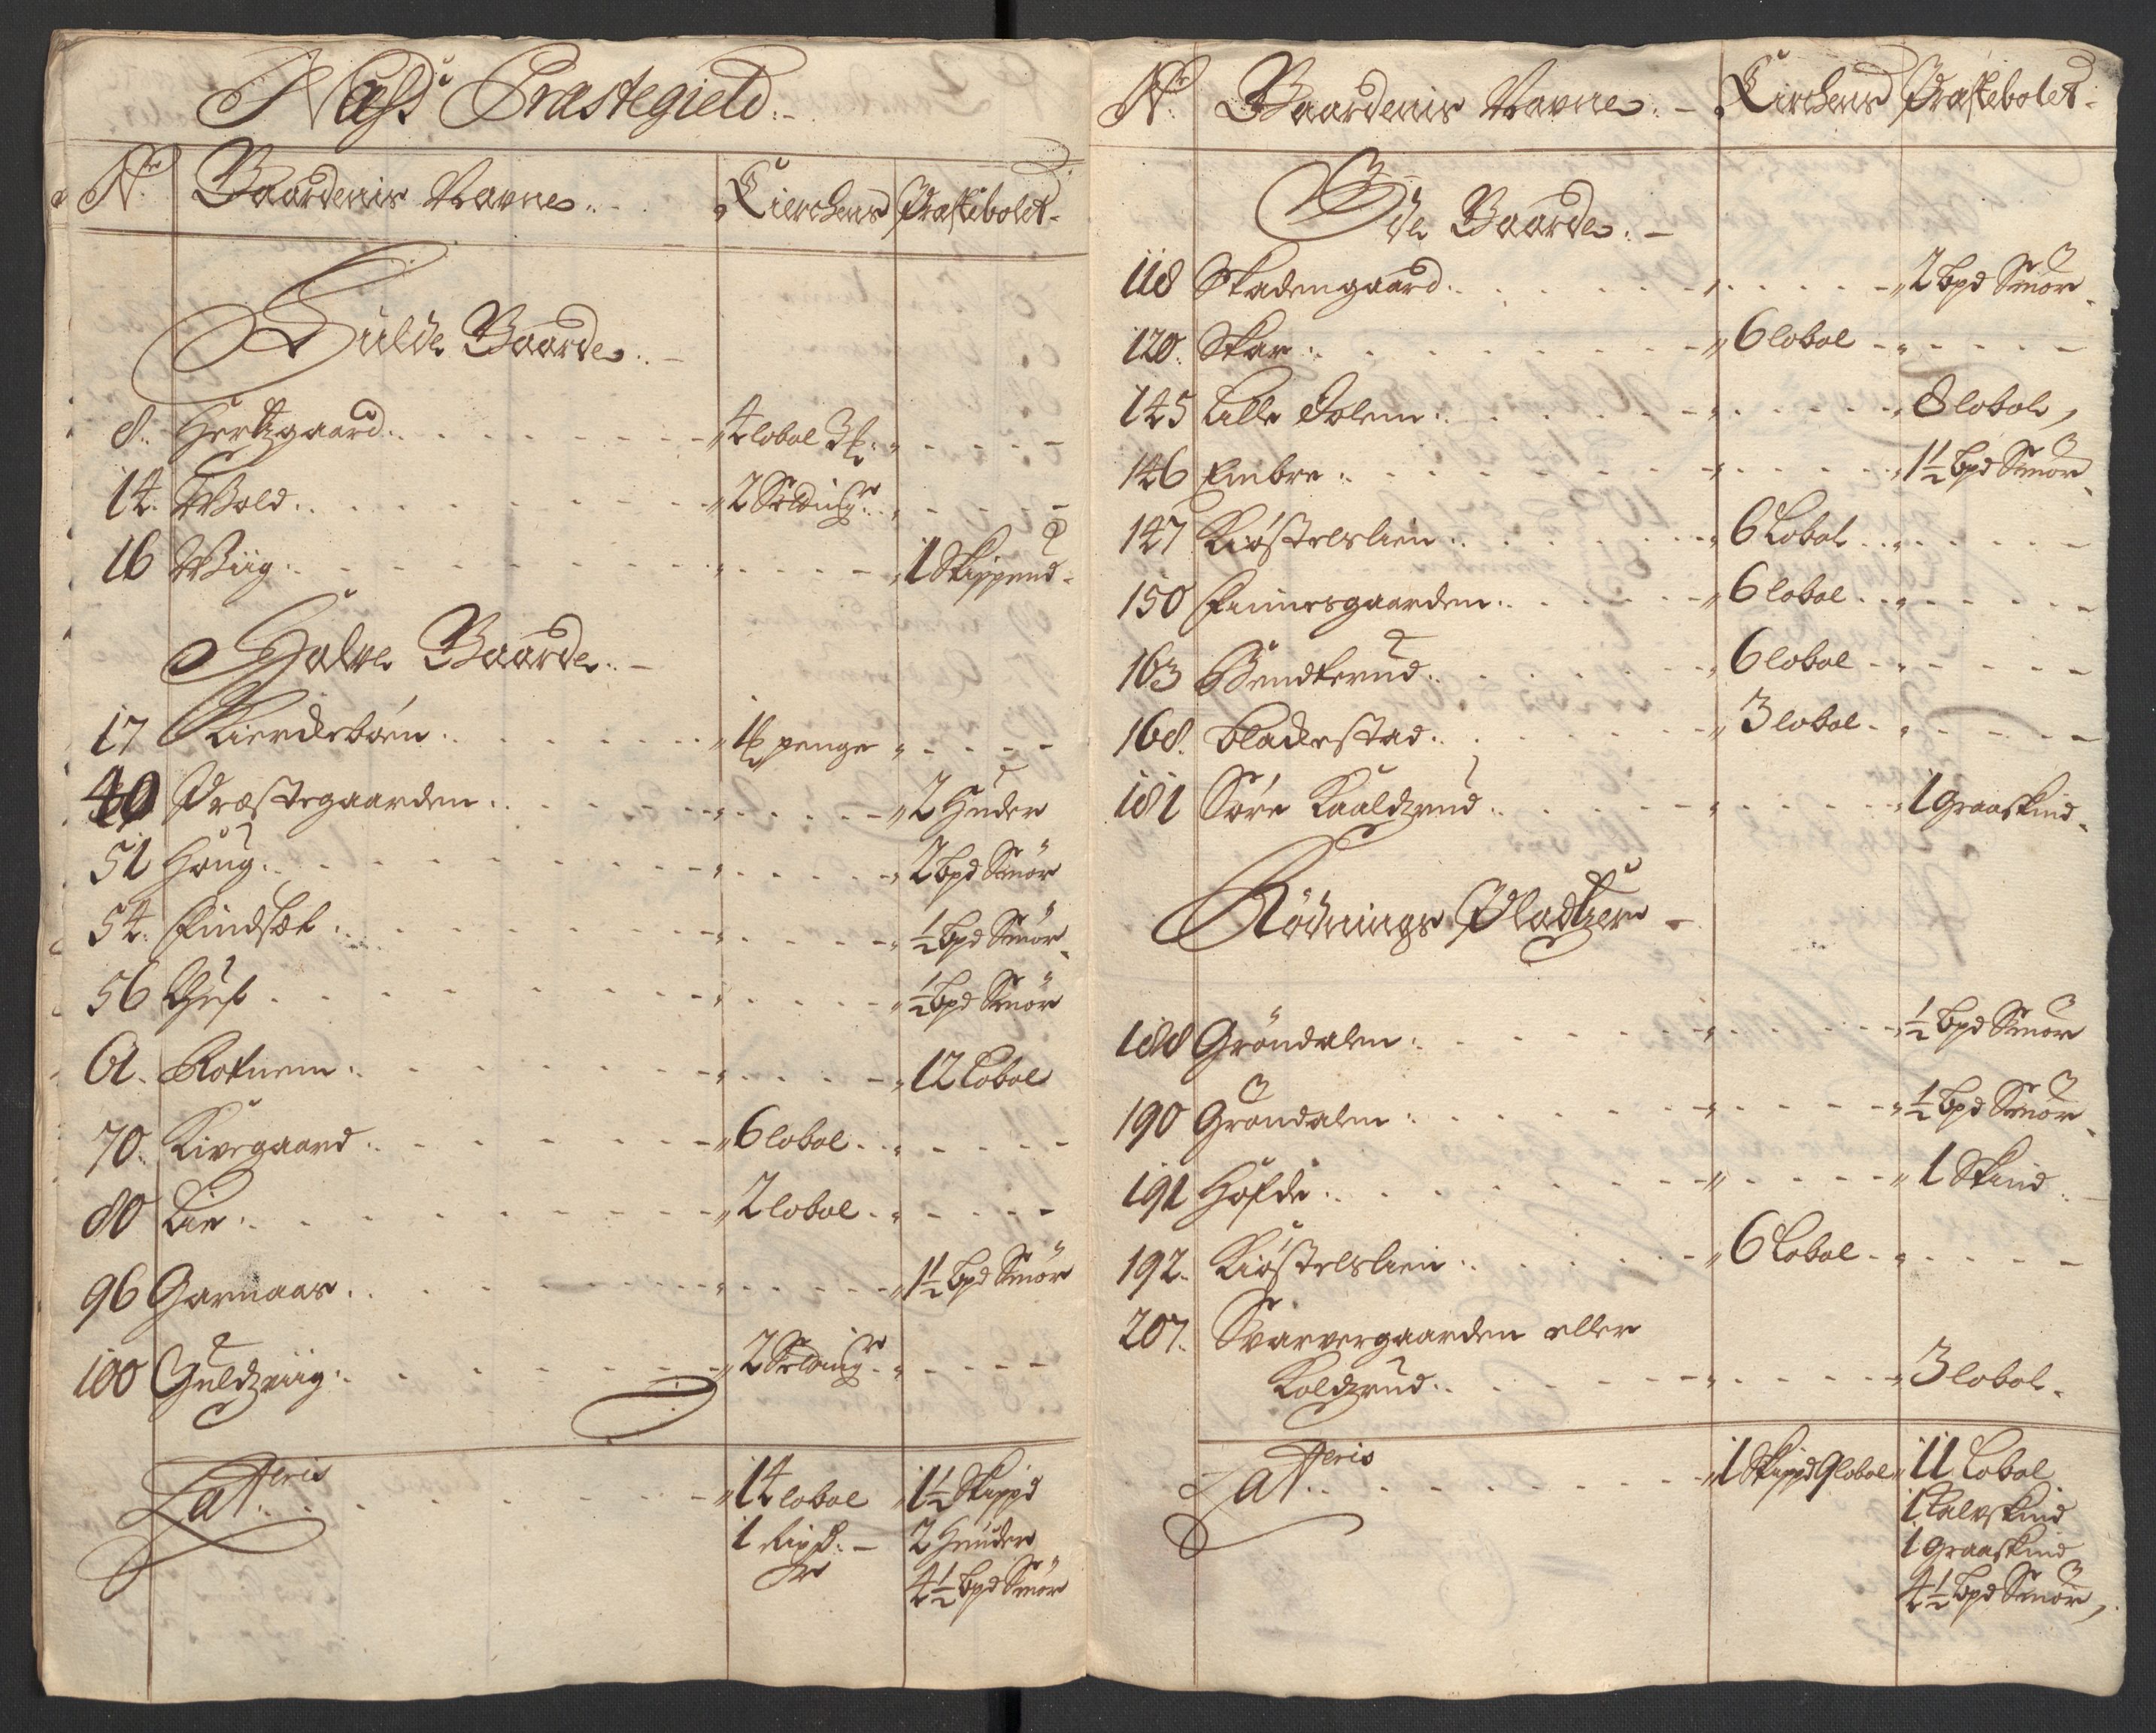 Næss Præstegield.
No. Gaardenis Navne. Kierchens Præstebolet
Fulde Gaarde.
8. Hertzgaard. 4 lobol
14. Wold. 2 Setding
16 Wiig. 1 Skippund
Halve Gaarde.
17 Kierdebøen. penge
40 Præstegaarden. 2 Huder
51 Houg. 2 bpd Smør
54. Findsæt. ½ bpd Smør
56 ½ bpd Smør
61. Rotnem. 12 Lobol
70. Kiregaard. 6 lobol
80 Lie. 2 lobol
96 Garnaas. 1½ bpd Smør
100 Guldzwiig. 2 Setding
Lateris 14 lobol 1½ Skippd
1 2 Huuder
4½ bpd Smør
No. Gaardenis Navne. Kirchens Præstebolet
Øde Gaarde.
118 Skadengaard. 2 bpd Smør
120. Skar. 6 lobol
145 Lille Dolem. 8 lobol,
146 Embre. 1½ bpd Smør
147 Kiøstelslien. 6 Lobol
150 Finnesgaarden. 6 lobol
163 Bendterud. 6 lobol
168. Bladerstad. 3 lobol
181 Søre Kaaldzrud. 1 Graaskind
Rødnings Pladtzer
188 Grøndalen. ½ bpd Smør
190 Grøndalen. ½ bpd Smør
191 Hofde. 1 Skind
192. Kiøstelslien. 6 Lobol
207. Svarvergaarden eller
Koldzrud. 3 lobol
Lateris 1 Skippd 9 lobol 11 Lobol
1 Kalvskind
1 Graaskind
4½ bpd Smør,